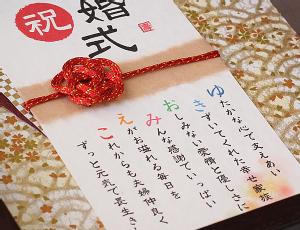 祝
婚式
ゆたかな心で支えあい
きずいてくれた幸せ家族
おしみない愛情と優しさに
みんな感謝でいっぱい
えがお溢れる毎日を
これからも夫婦仲良く
ずっと元気で長生き